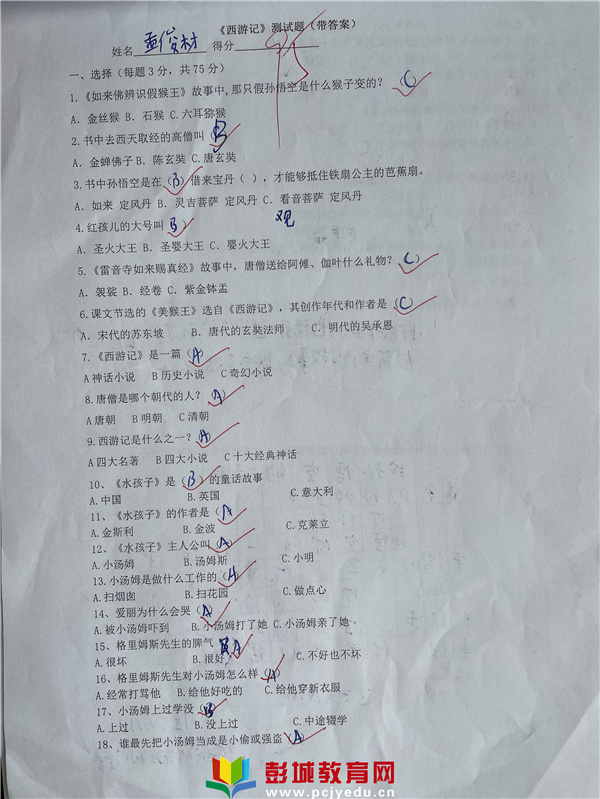 《西游记》测试题（带答案）
姓名 孟俊材 得分 95
一、选择（每题3分，共75分）
1.《如来佛辨识假猴王》故事中,那只假孙悟空是什么猴子变的？（C）
A. 金丝猴 B. 石猴 C.六耳猕猴
2.书中去西天取经的高僧叫（B）
A．金蝉佛子 B．陈玄奘 C.唐玄奘
3.书中孙悟空是在（B）借来宝丹（ ），才能够抵住铁扇公主的芭蕉扇。
A．如来 定风丹 B．灵吉菩萨 定风丹 C．看音菩萨 定风丹
观
4.红孩儿的大号叫（B）
A．圣火大王 B．圣婴大王 C．婴火大王
5.《雷音寺如来赐真经》故事中，唐僧送给阿傩、伽叶什么礼物？（C）
A．袈裟 B．经卷 C．紫金钵盂
6.课文节选的《美猴王》选自《西游记》，其创作年代和作者是（C）
A．宋代的苏东坡 B．唐代的玄奘法师 C．明代的吴承恩
7.《西游记》是一篇（A）
A 神话小说 B 历史小说 C 奇幻小说
8.唐僧是哪个朝代的人？（A）
A 唐朝 B 明朝 C 清朝
9.西游记是什么之一？（A）
A 四大名著 B 四大小说 C 十大经典神话
10、《水孩子》是（B）的童话故事
A.中国 B.英国 C.意大利
11、《水孩子》的作者是（A）
A.金斯利 B.金波 C.克莱立
12、《水孩子》主人公叫（A）
A.小汤姆 B.汤姆斯 C.小明
13.小汤姆是做什么工作的（A）
A.扫烟囱 B.扫花园 C.做点心
14、爱丽为什么会哭（A）
A.被小汤姆吓到 B.小汤姆打了她 C.小汤姆亲了她
15、格里姆斯先生的脾气 A
A.很坏 B.很好 C.不好也不坏
16、格里姆斯先生对小汤姆怎么样（A）
A.经常打骂他 B.给他好吃的 C.给他穿新衣服
17、小汤姆上过学没（B）
A.上过 B.没上过 C.中途辍学
18、谁最先把小汤姆当成是小偷或强盗（A）
彭城教育网
www.pcjyedu.cn